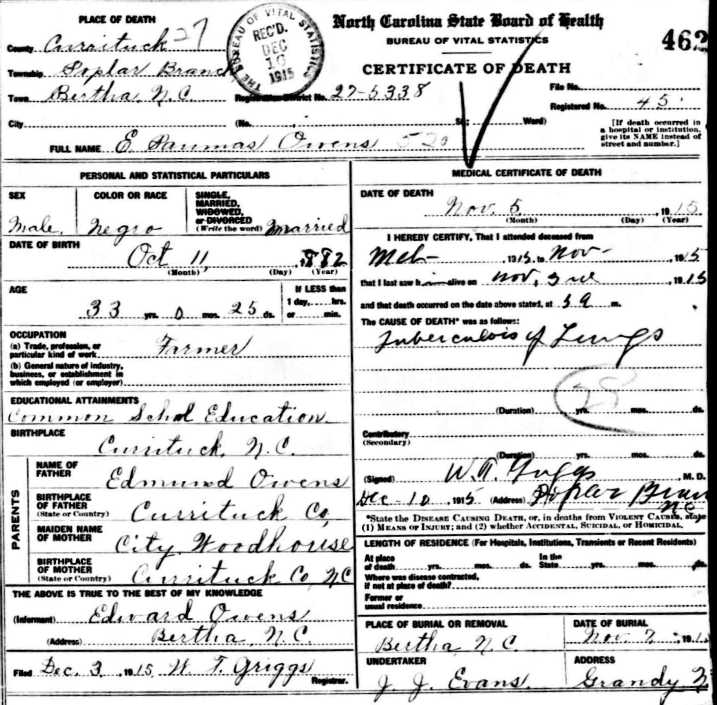 PLACE OF DEATH
County Currituck 27
Township Poplar Branch
Town Bertha, N.C.
City
THE BUREAU OF VITAL STATISTICS
REC'D.
DEC
10
1915
North Carolina State Board of Health
BUREAU OF VITAL STATISTICS
CERTIFICATE OF DEATH
462
Registration District No. 27-5338
File No.
Registered No. 45
(No. St.; Ward)
[If death occurred in a hospital or institution, give its NAME instead of street and number.]
FULL NAME E. Owens
PERSONAL AND STATISTICAL PARTICULARS
SEX
Male,
COLOR OR RACE
Negro
SINGLE, MARRIED, WIDOWED, or DIVORCED
(Write the word) Married
DATE OF BIRTH
Oct 11, 1882
(Month) (Day) (Year)
AGE
33 yrs. 0 mos. 25 ds.
If LESS than
1 day, hrs.
or min.
OCCUPATION
(a) Trade, profession, or particular kind of work Farmer
(b) General nature of industry, business, or establishment in which employed (or employer)
EDUCATIONAL ATTAINMENTS
Common Schol Education
BIRTHPLACE
Currituck, N.C.
PARENTS
NAME OF FATHER
Edmund Owens
BIRTHPLACE OF FATHER
(State or Country) Currituck Co,
MAIDEN NAME OF MOTHER
City Woodhouse
BIRTHPLACE OF MOTHER
(State or Country) Currituck Co, NC
THE ABOVE IS TRUE TO THE BEST OF MY KNOWLEDGE
(Informant) Edward Owens
(Address) Bertha, N.C.
Filed Dec. 3, 1915 W. T. Griggs
Registrar.
MEDICAL CERTIFICATE OF DEATH
DATE OF DEATH
Nov. 5, 1915
(Month) (Day) (Year)
I HEREBY CERTIFY, That I attended deceased from
1915 to Nov- 1915
that I last saw him alive on Nov, 3rd 1915
and that death occurred on the date above stated, at m.
The CAUSE OF DEATH* was as follows:
Tuberculosis of Lungs
28
(Duration) yrs. mos. ds.
Contributory
(Secondary)
(Duration) yrs. mos. ds.
(Signed) M. D.
Dec-10 1915 (Address) Poplar
NC
*State the DISEASE CAUSING DEATH, or, in deaths from VIOLENT CAUSES, state
(1) MEANS OF INJURY; and (2) whether ACCIDENTAL, SUICIDAL, or HOMICIDAL.
LENGTH OF RESIDENCE (For Hospitals, Institutions, Transients or Recent Residents)
At place of death yrs. mos. ds.
In the State yrs. mos. ds.
Where was disease contracted, if not at place of death?
Former or usual residence
PLACE OF BURIAL OR REMOVAL
Bertha, N.C.
DATE OF BURIAL
Nov 7, 1915
UNDERTAKER
J. J. Evans.
ADDRESS
Grandy